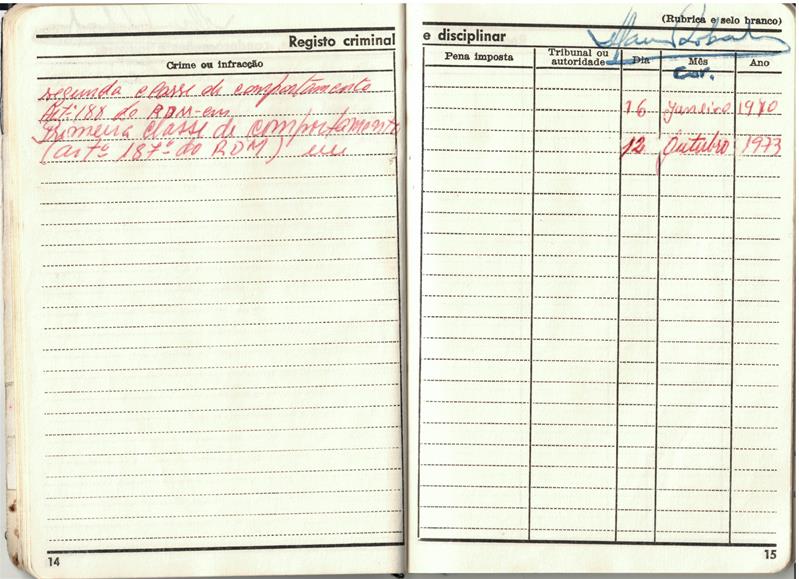 (Rubrica e selo branco)
Registo criminal e disciplinar
Crime ou infracção
Pena imposta
Tribunal ou autoridade
Dia
Mês
Ano
cor.
segunda classe de comportamento
Artº 188 do RDM-em 16 Janeiro 1970
Primeira classe de comportamento
(artº 187º do RDM) em 12 Outubro 1973
14
15